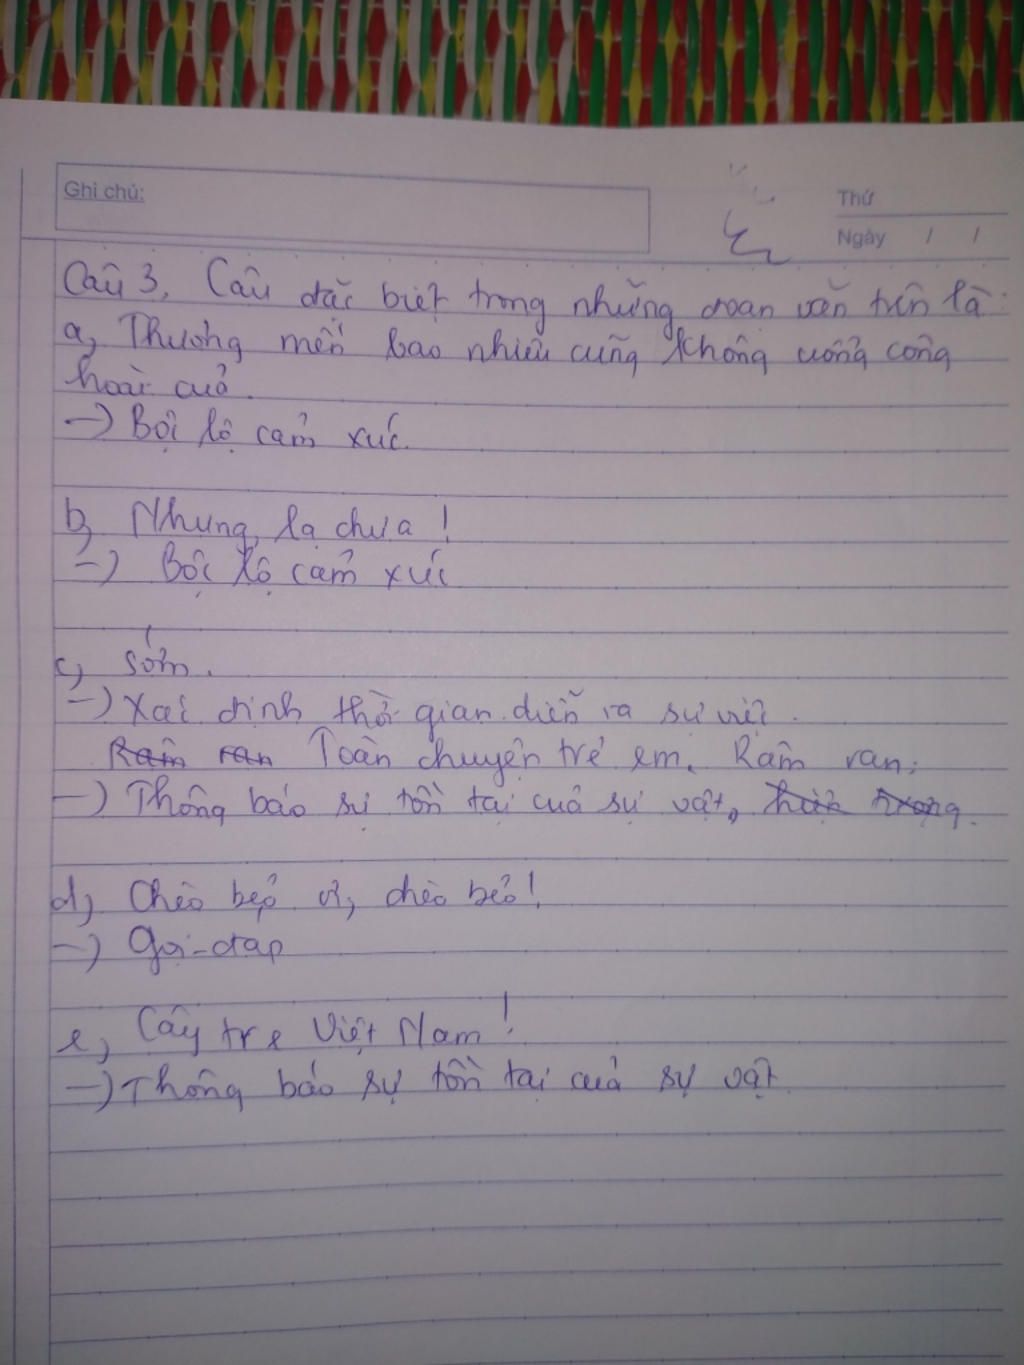 Ghi chú:
Thứ
Ngày / /
Câu 3. Câu đặc biệt trong những đoạn văn trên là:
a, Thương mến bao nhiêu cũng không uổng công
hoài của.
-> Bội lộ cảm xúc.
b, Nhưng, lạ chưa!
-> Bộc lộ cảm xúc
c, Sớm.
-> Xác định thời gian diễn ra sự việc.
Râm ran Toàn chuyện trẻ em. Râm ran.
-> Thông báo sự tồn tại của sự vật,
d, Chèo bẻo ơi, chèo bẻo!
-> Gọi - đáp
e, Cây tre Việt Nam!
-> Thông báo sự tồn tại của sự vật